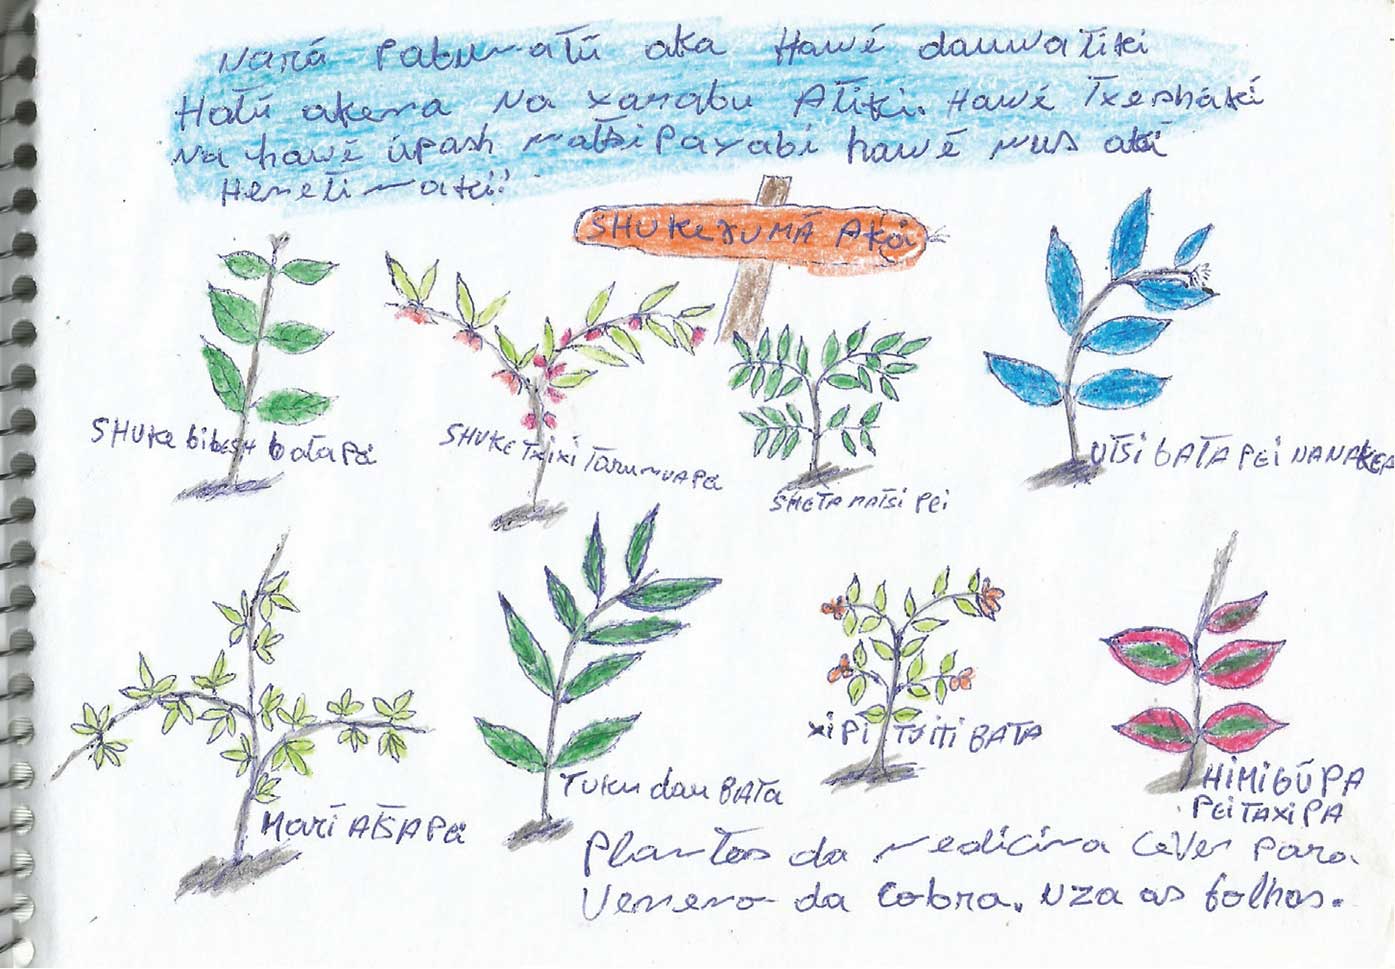 Nará Pabumatũ aka Hawẽ dauwatiki
Hatũ akena Na xarabu Atiki. Hawẽ Txeshãki
Na hawẽ ũpash matsi Parabi hawẽ nus aki
Henetimaki!
SHUKE YUMÃ AKa
SHUKE bibESH bataPei
SHUKE TXiXi TarumuaPei
SHETA MATSi PEi
UTSi BATA PEi NANAKEA
Mari ATSAPei
TUKU dau BATA
XiPi TSiTi BATA
HiMi GŨPA
PEi TAXiPA
Plantas da medicina Para
Veneno da Cobra. Uza as folhas.